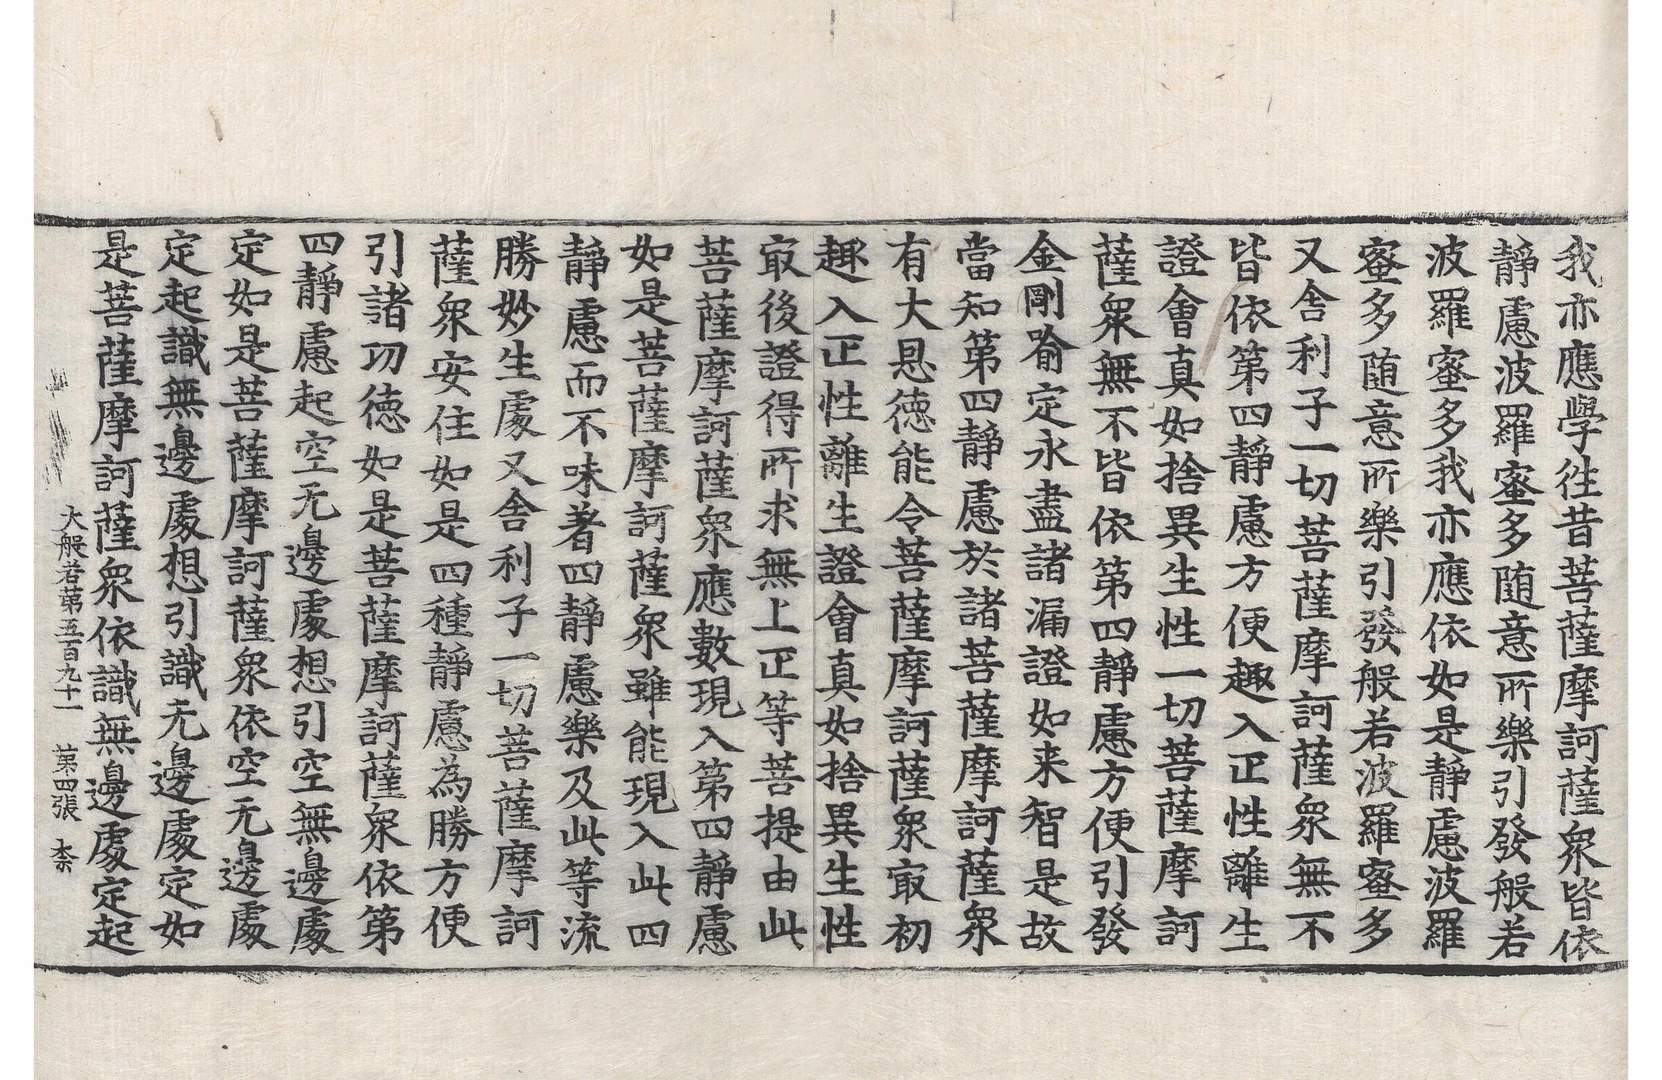 我亦應學徃昔菩薩摩訶薩衆皆依
靜慮波羅蜜多随意所樂引發般若
波羅蜜多我亦應依如是靜慮波羅
蜜多随意所樂引發般若波羅蜜多
又舍利子一切菩薩摩訶薩衆無不
皆依第四靜慮方便趣入正性離生
證會真如捨異生性一切菩薩摩訶
薩衆無不皆依第四靜慮方便引發
金剛喻定永盡諸漏證如来智是故
當知第四靜慮於諸菩薩摩訶薩衆
有大恩德能令菩薩摩訶薩衆㝡初
趣入正性離生證會真如捨異生性
㝡後證得所求無上正等菩提由此
菩薩摩訶薩衆應數現入第四靜慮
如是菩薩摩訶薩衆雖能現入此四
靜慮而不味著四靜慮樂及此等流
勝妙生處又舍利子一切菩薩摩訶
薩衆安住如是四種靜慮為勝方便
引諸功德如是菩薩摩訶薩衆依第
四靜慮起空无邊處想引空無邊處
定如是菩薩摩訶薩衆依空无邊處
定起識無邊處想引識无邊處定如
是菩薩摩訶薩衆依識無邊處定起
大般若第五百九十一 第四張 柰